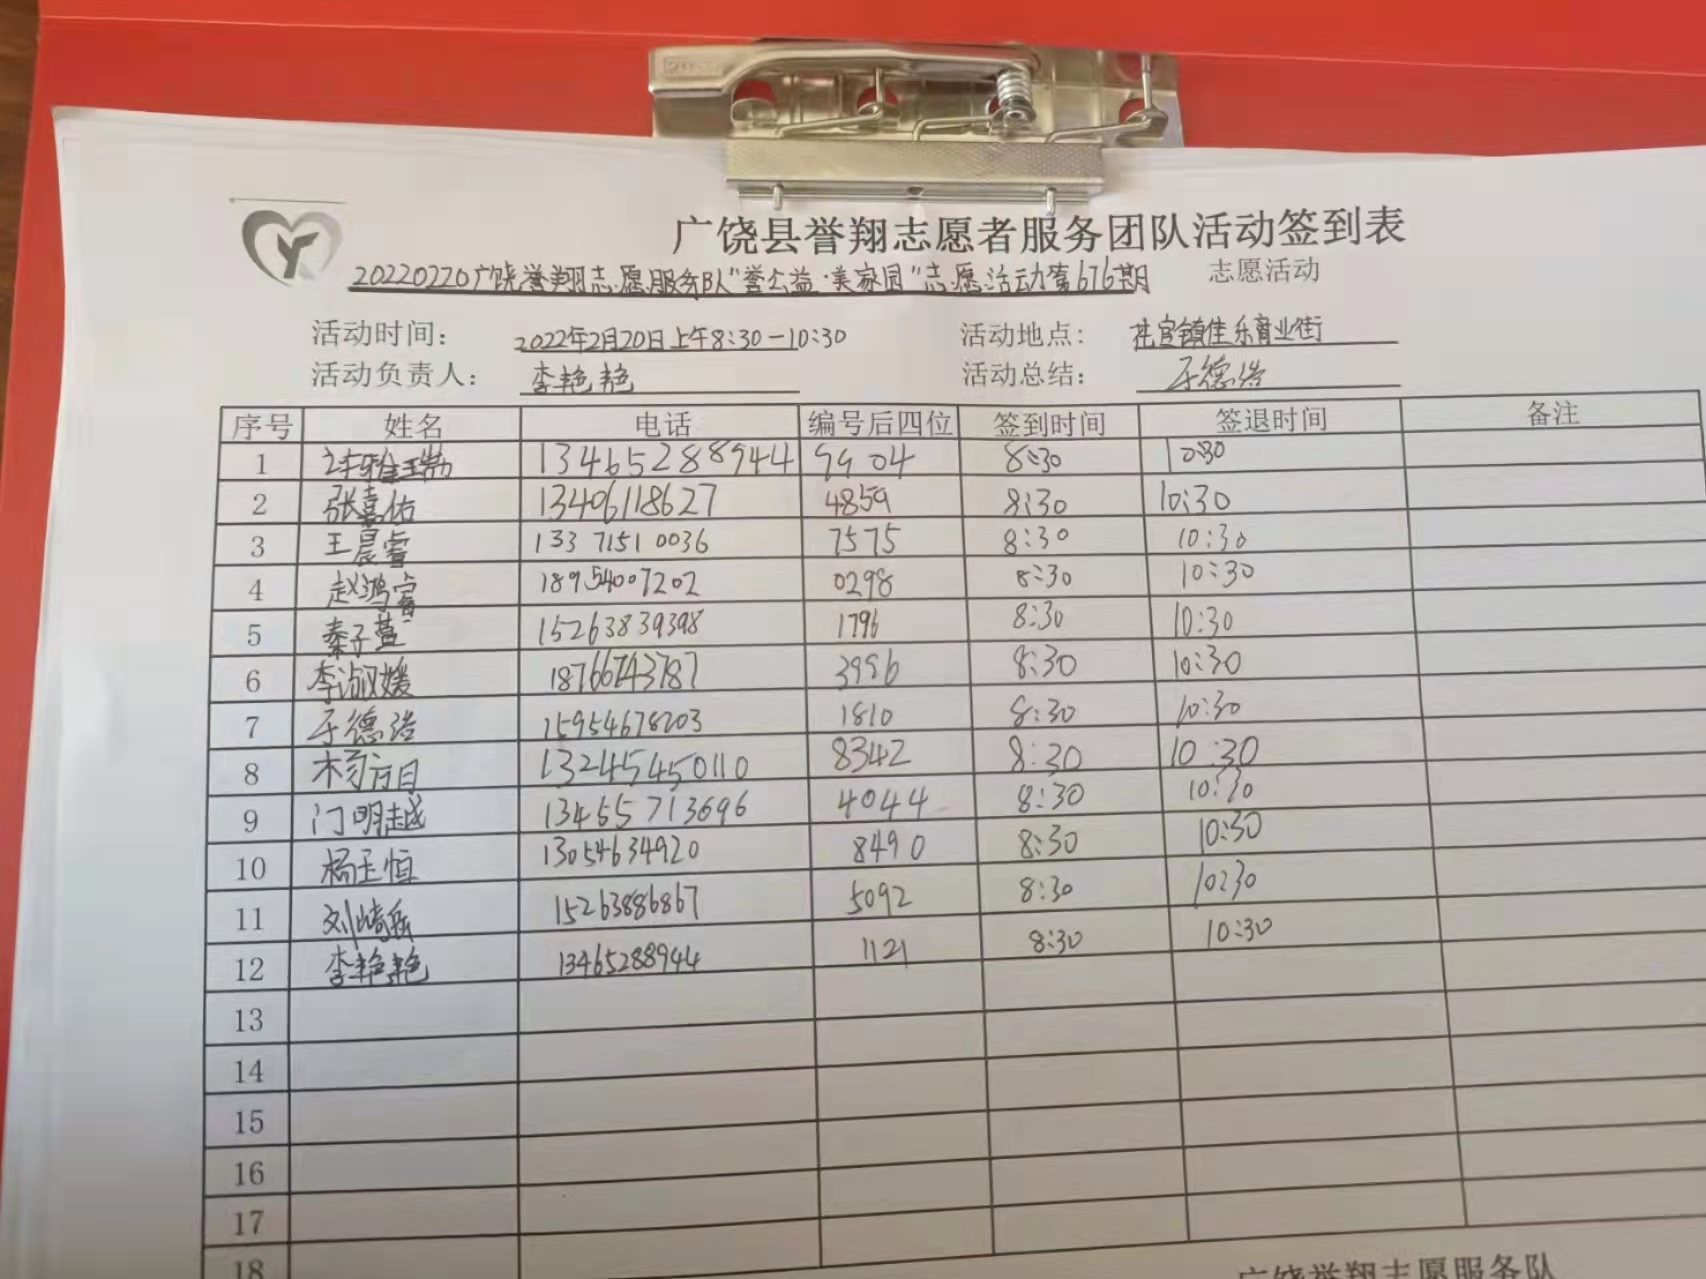 广饶县誉翔志愿者服务团队活动签到表
20220220广饶誉翔志愿服务队“誉公益·美家园”志愿活动第676期 志愿活动
活动时间: 2022年2月20日上午8:30-10:30 活动地点: 社官镇佳乐商业街
活动负责人: 李艳艳 活动总结: 于德浩
序号 姓名 电话 编号后四位 签到时间 签退时间 备注
1 13465288944 9904 8:30 10:30
2 张嘉佑 13406118627 4859 8:30 10:30
3 王晨睿 13371510036 7575 8:30 10:30
4 赵鸿睿 18954007202 0298 8:30 10:30
5 秦子萱 15263839398 1796 8:30 10:30
6 李淑媛 18766743787 3996 8:30 10:30
7 于德浩 15954678203 1810 8:30 10:30
8 13245450110 8342 8:30 10:30
9 门明越 13465713696 4044 8:30 10:30
10 杨玉恒 13054634920 8490 8:30 10:30
11 刘崎岳 15263886867 5092 8:30 10:30
12 李艳艳 13465288944 1121 8:30 10:30
13
14
15
16
17
18
广饶誉翔志愿服务队